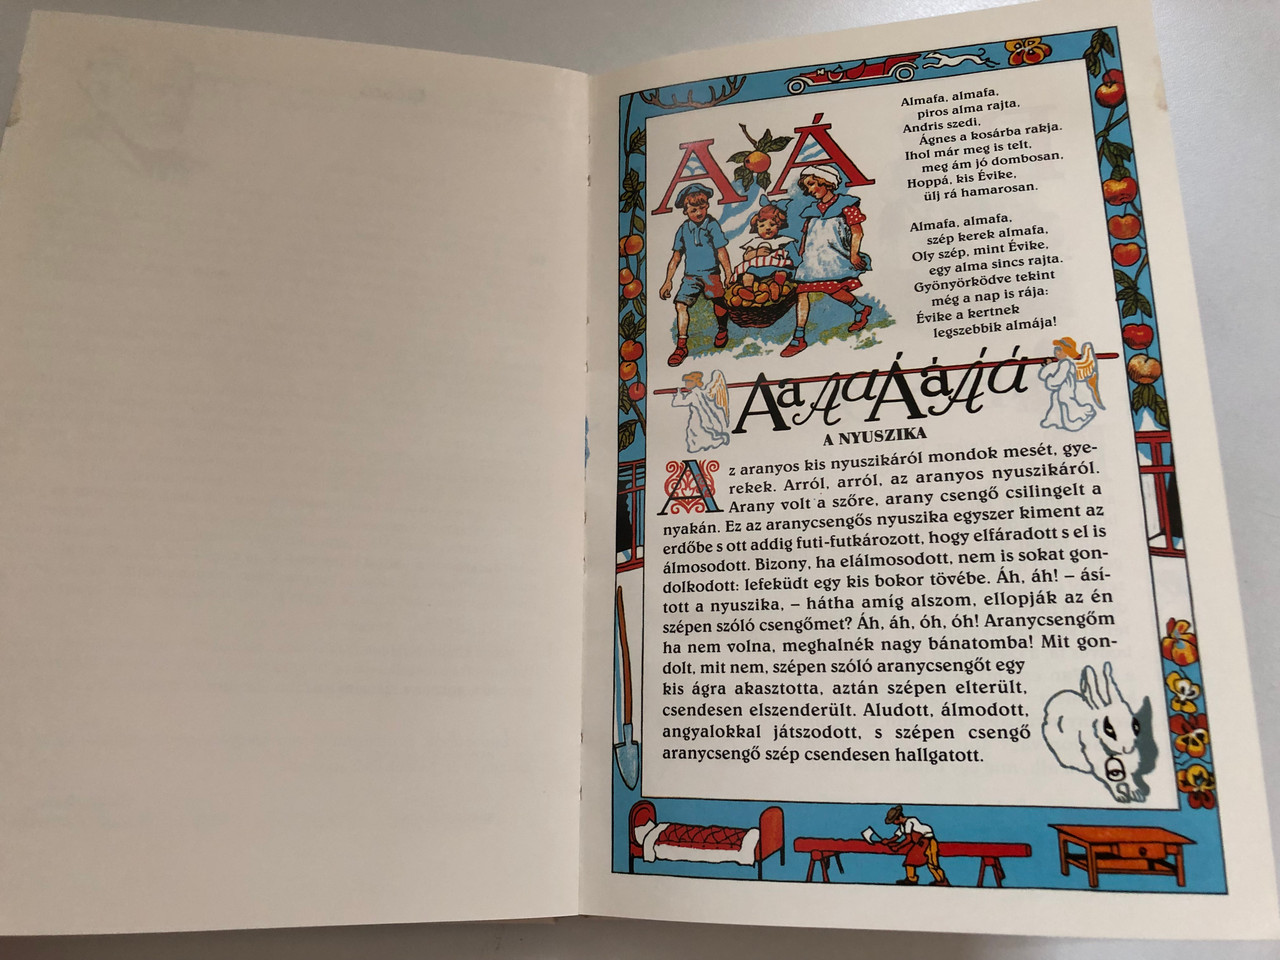 A Á
Almafa, almafa,
piros alma rajta,
Andris szedi,
Ágnes a kosárba rakja.
Ihol már meg is telt,
meg ám jó dombosan,
Hoppá, kis Évike,
ülj rá hamarosan.
Almafa, almafa,
szép kerek almafa,
Oly szép, mint Évike,
egy alma sincs rajta.
Gyönyörködve tekint
még a nap is rája:
Évike a kertnek
legszebbik almája!
Aa Aa Áá Áá
A NYUSZIKA
Az aranyos kis nyuszikáról mondok mesét, gye-
rekek. Arról, arról, az aranyos nyuszikáról.
Arany volt a szőre, arany csengő csilingelt a
nyakán. Ez az aranycsengős nyuszika egyszer kiment az
erdőbe s ott addig futi-futkározott, hogy elfáradott s el is
álmosodott. Bizony, ha elálmosodott, nem is sokat gon-
dolkodott: lefeküdt egy kis bokor tövébe. Áh, áh! – ásí-
tott a nyuszika, – hátha amíg alszom, ellopják az én
szépen szóló csengőmet? Áh, áh, óh, óh! Aranycsengőm
ha nem volna, meghalnék nagy bánatomba! Mit gon-
dolt, mit nem, szépen szóló aranycsengőt egy
kis ágra akasztotta, aztán szépen elterült,
csendesen elszenderült. Aludott, álmodott,
angyalokkal játszodott, s szépen csengő
aranycsengő szép csendesen hallgatott.